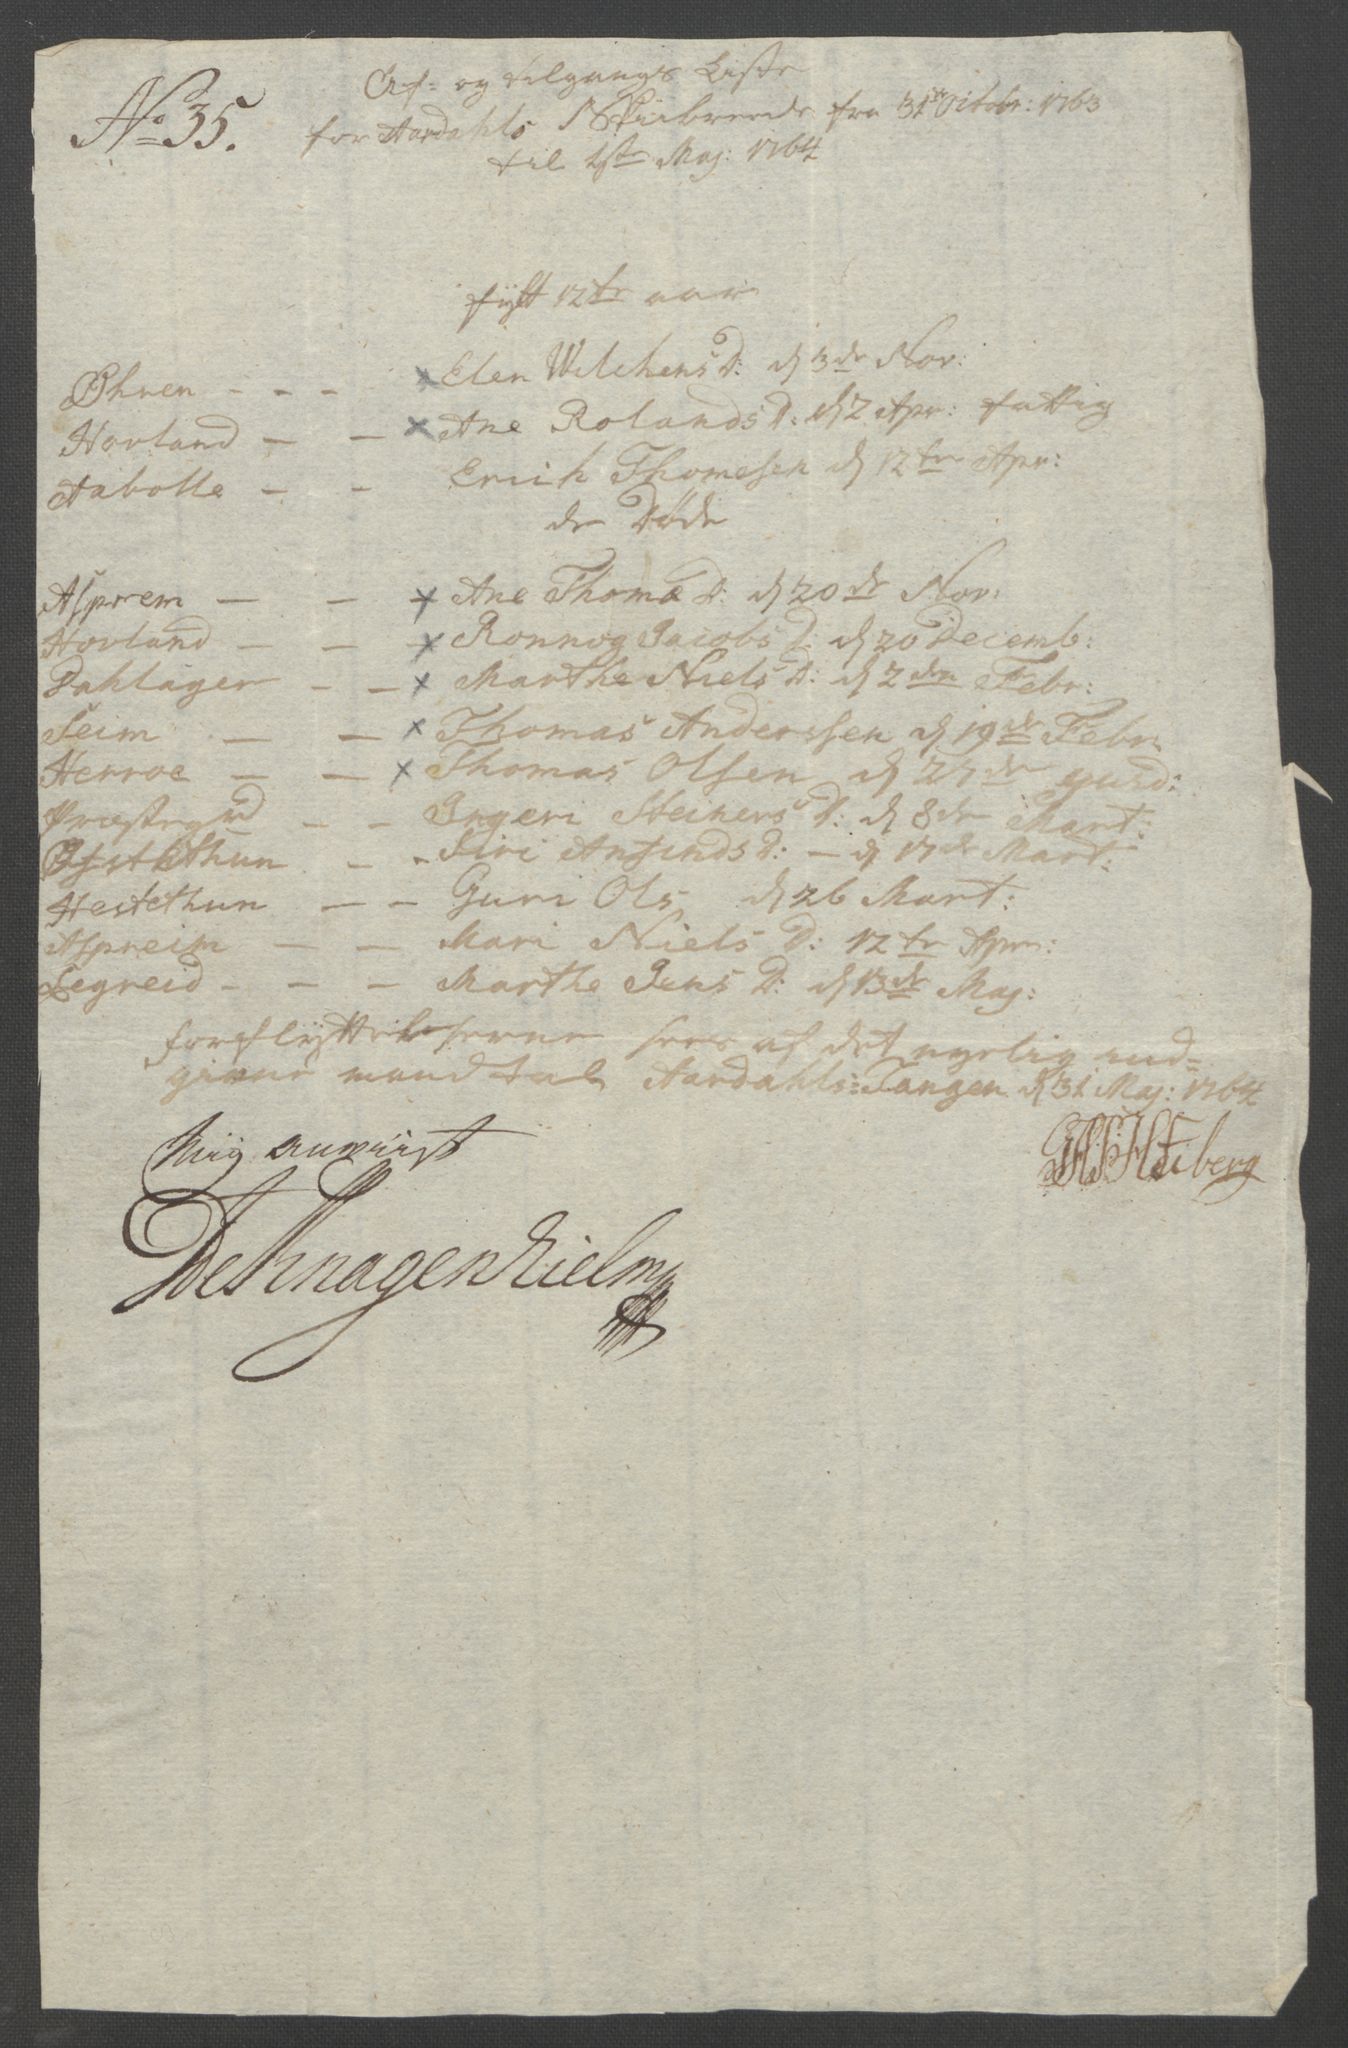 No 35.
Af- og tilgangs Liste
for Aardahls Skibreede fra 31te Octobr: 1763
til 1ste Maj: 1764
fyldt 12te aar
Øhren - - - x Elen Wilchens D: d 3de Nov:
Hovland - - x Ane Rolands D: d 2 Apr: fattig
Aabolle - - Erich Thomesen d 12te Apr:
de Døde
Asprem - - - x Ane Thome D: d 20de Nov:
Hovland - - x Ronnog Jacobs D: d 20 Decemb:
Dahlager - - x Marthe Niels D: d 2den Febr:
Seim - - x Thomas Anderssen d 19de Febr
Herroe - - x Thomas Olsen d 27de
Præstegrd - - Ingeri Steiners D: d 8de Mart:
Hestethun - - Siri Amunds D: - d 17de Mart:
Hestethun - - Guri Ols d 26 Mart:
Aspreim - - Mari Niels D: 12te Apr:
Legreid - - - Marthe Jens D: d 13de Maj:
forflyttelserne sees af det nyelig ud-
givne mandtal Aardahls-Tangen d 31 Maj: 1764
Heiberg
Mig anviist
De Knagenhielm